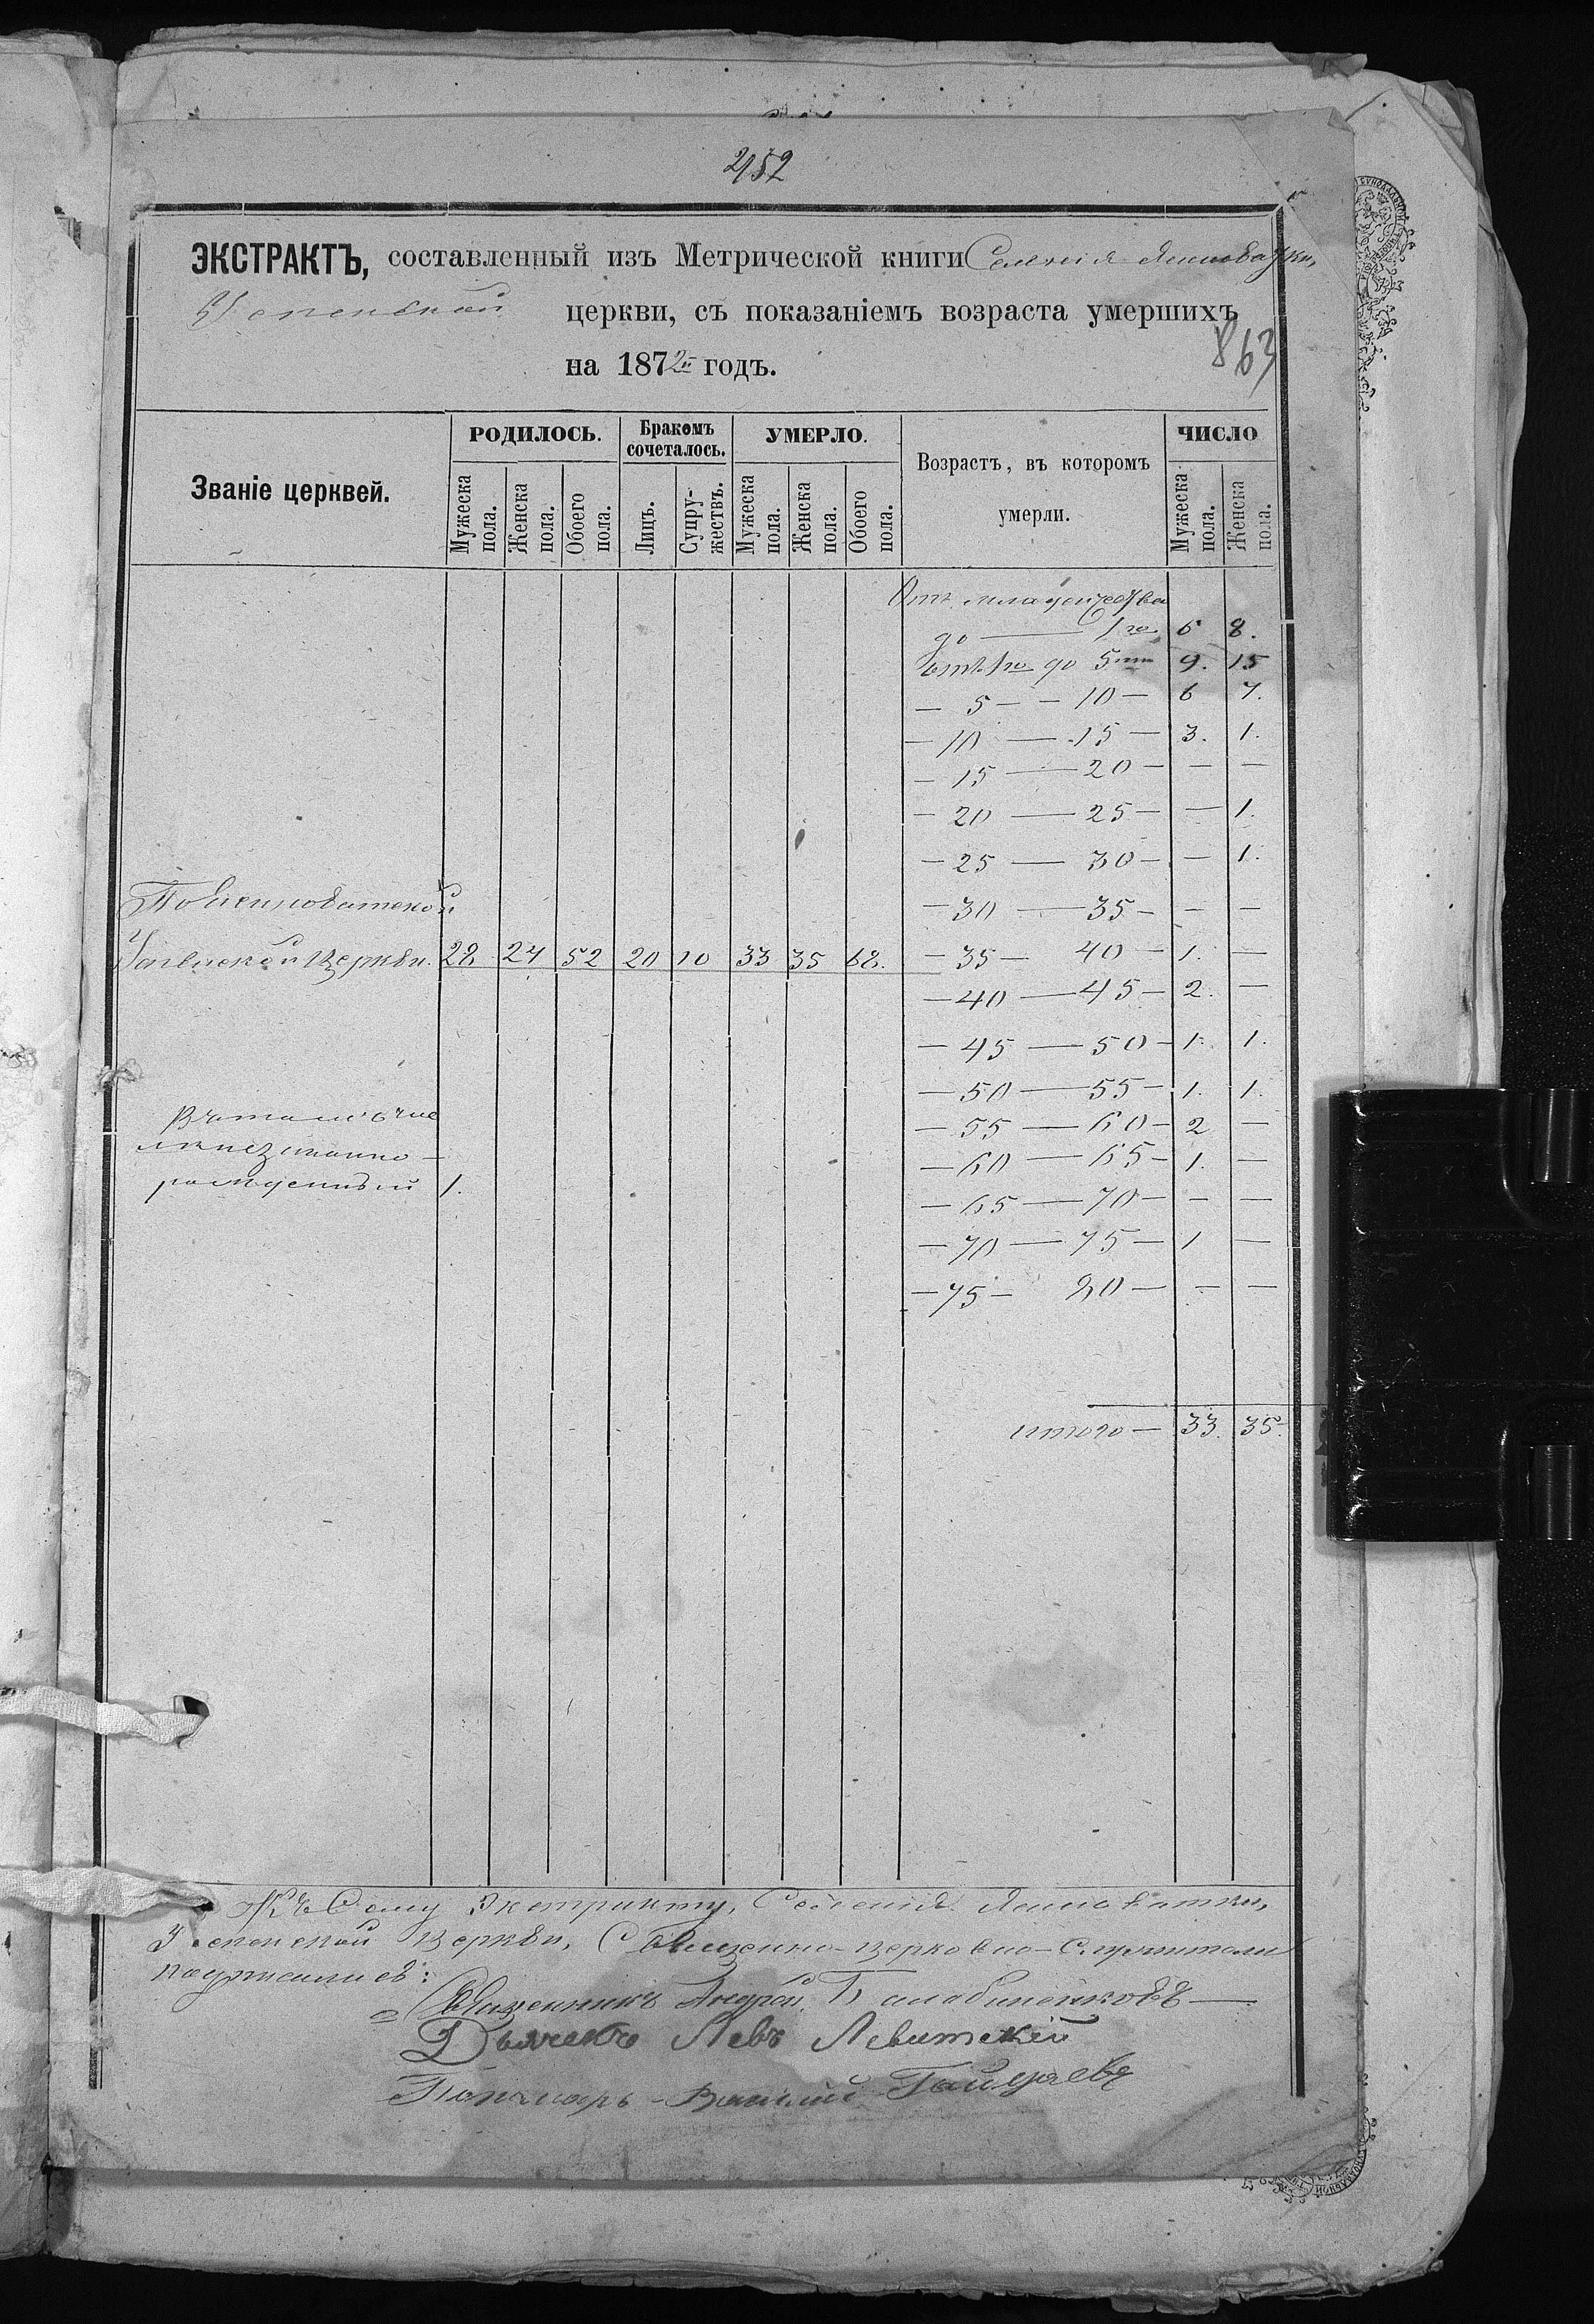 452
ЭКСТРАКТЪ, составленный изъ Метрической книги Селенія Ясиноватки,
Успенской церкви, съ показаніемъ возраста умершихъ
863
на 1872й годъ.
Званіе церквей. РОДИЛОСЬ. Бракомъ сочеталось. УМЕРЛО. Возрастъ, въ которомъ умерли. ЧИСЛО
Мужеска пола. Женска пола. Обоего пола. Лицъ. Супру-жествъ. Мужеска пола. Женска пола. Обоего пола. Мужеска пола. Женска пола.
Отъ младенчества
до — 1го 5 8.
отъ 1го до 5ти 9. 15
— 5 — — 10 — 6 7.
— 10 — 15 — 3. 1.
— 15 — 20 — — —
— 20 — 25 — — 1.
— 25 — 30 — — 1.
По Ясиноватской
— 30 — 35 — — —
Успенской Церкви. 28 24 52 20 10 33 35 68. — 35 — 40 — 1. —
— 40 — 45 — 2. —
— 45 — 50 — 1. 1.
— 50 — 55 — 1. 1.
Въ томъ чис
— 55 — 60 — 2 —
лѣ незаконно-
— 60 — 65 — 1. —
рожденный 1.
— 65 — 70 — — —
— 70 — 75 — 1 —
— 75 — 80 — — —
итого — 33. 35.
Къ Сему Экстракту, Селенія Ясиноватки,
Успенской Церкви, Священно-церковно-служители
подписались:
Священникъ Андрей
Дьячекъ Левъ Левитскій
Пономарь Василій Гайдаевъ